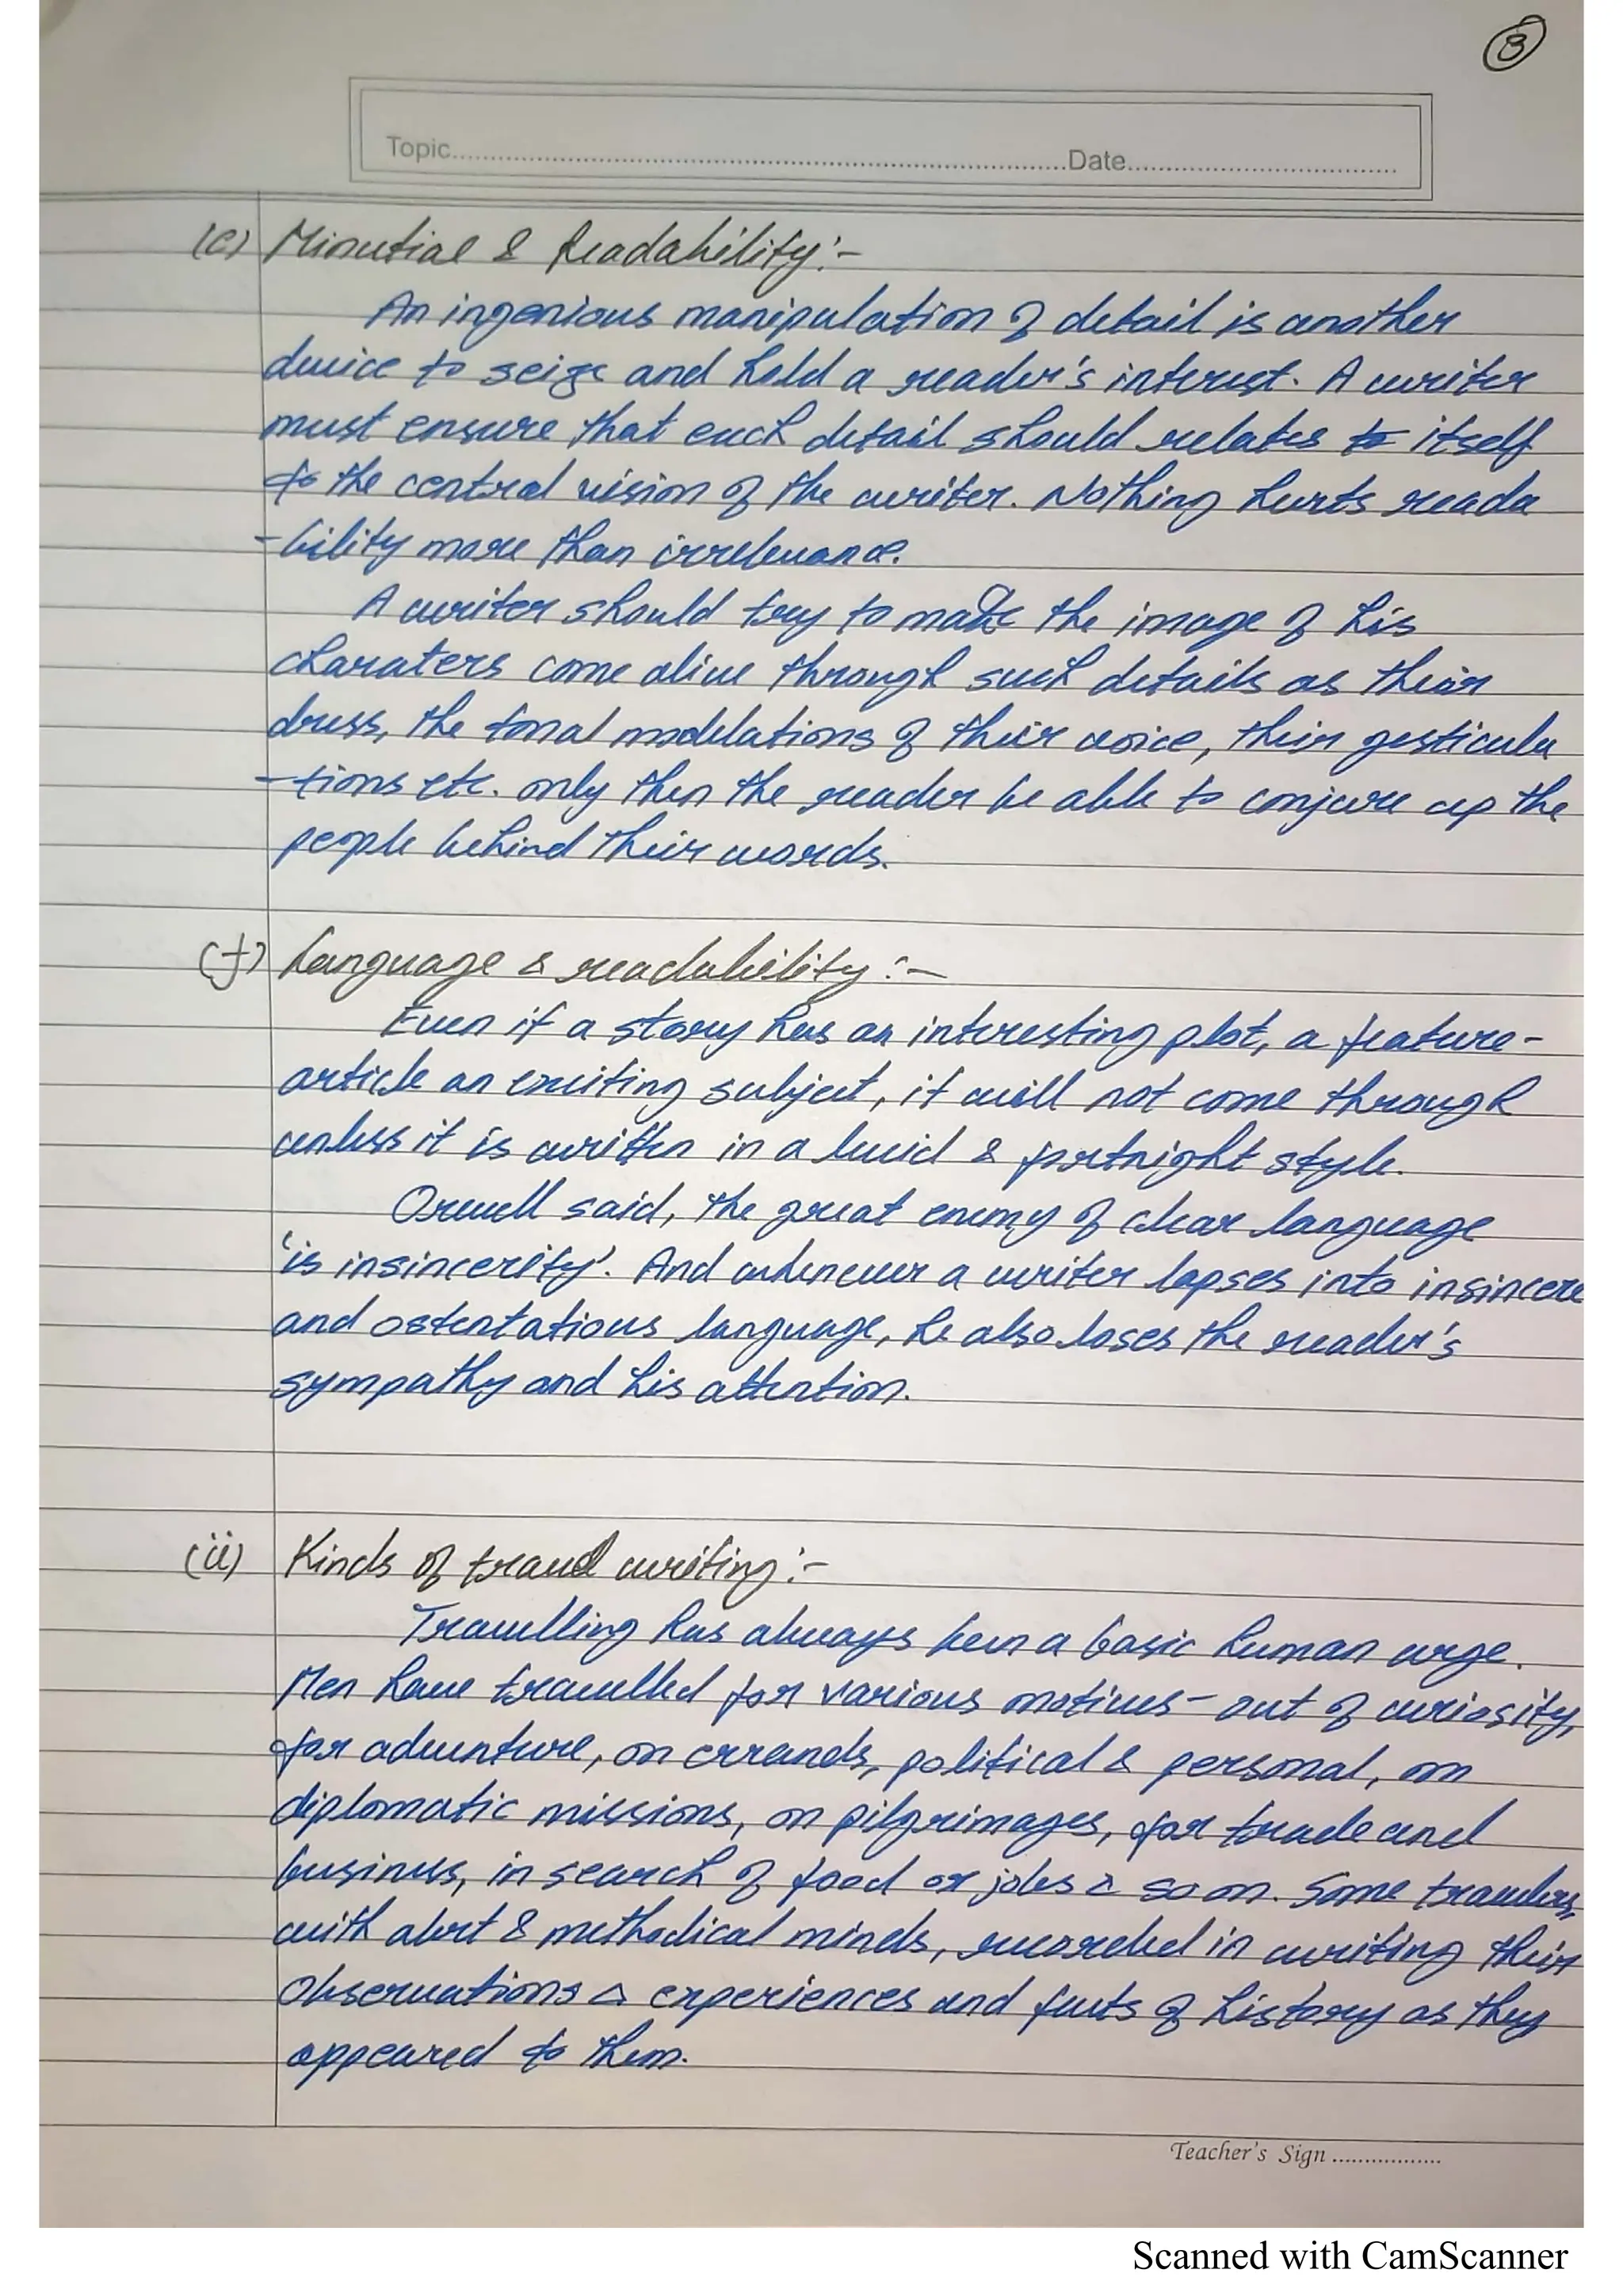 3
Topic.....................Date.....................
(e) Minutial & Readability:-
An ingenious manipulation of detail is another
device to seize and hold a reader's interest. A writer
must ensure that each detail should relates to itself
to the central vision of the writer. Nothing hurts reada
-bility more than irrelevance.
A writer should try to make the image of his
charaters come alive through such details as their
dress, the tonal modelations of their voice, their gesticula
-tions etc. only then the reader be able to conjure up the
people behind their words.
(f) Language & readability:-
Even if a story has an interesting plot, a feature-
article an exciting subject, it will not come through
unless it is written in a lucid & fortnight style.
Orwell said, the great enemy of clear language
'is insincerity'. And whenever a writer lapses into insincere
and ostentatious language, he also loses the reader's
sympathy and his attention.
(ii) Kinds of travel writing:-
Travelling has always been a basic human urge.
Men have travelled for various motives - out of curiosity,
for adventure, on errands, political & personal, on
diplomatic missions, on pilgrimages, for trade and
business, in search of food or jobs & so on. Some travelers,
with alert & methodical minds, recorded in writing their
observations & experiences and facts of history as they
appeared to them.
Teacher's Sign ..................
Scanned with CamScanner